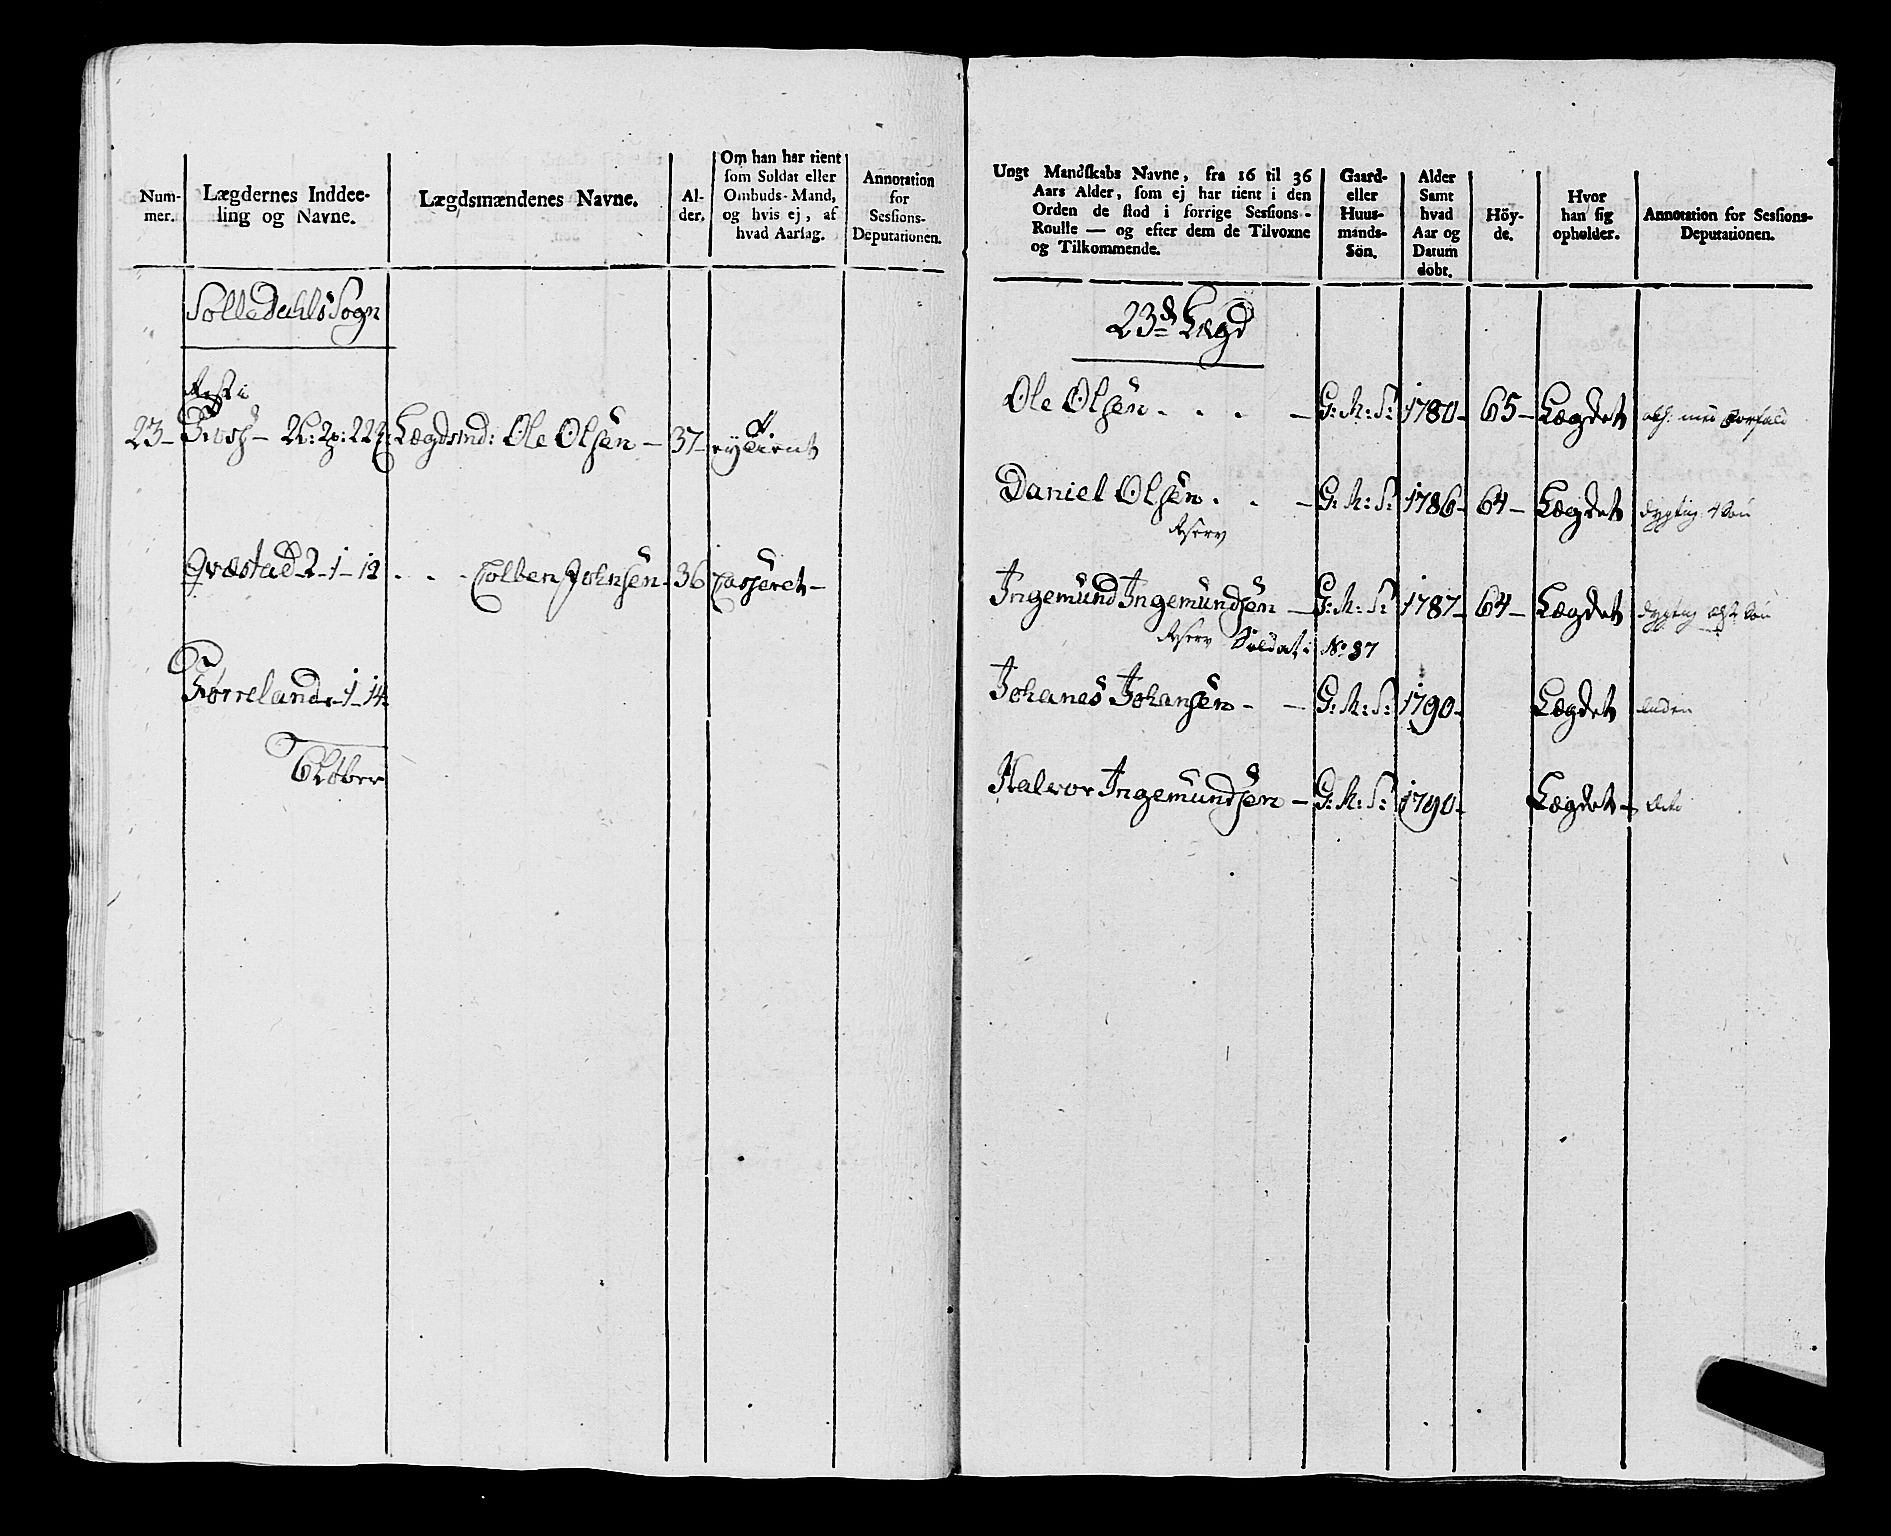 Num-
mer.
Lægdernes Inddee-
ling og Navne.
Lægdsmændenes Navne.
Al-
der.
Om han har tient
som Soldat eller
Ombuds-Mand,
og hvis ej, af
hvad Aarsag.
Annotation
for
Sessions-
Deputationen.
SolleDahls Sogn
23-
Lægdsmd: Ole Olsen - 37- ey tient
Qvæstad 2-1-12 . . - Colben Johnsen - 36 Casseret -
Tørreland - 1 - 14
6 Løber
Ungt Mandskabs Navne, fra 16 til 36
Aars Alder, som ej har tient i den
Orden de stod i forrige Sessions-
Roulle — og efter dem de Tilvoxne
og Tilkommende.
Gaard-
eller
Huus-
mands-
Sön.
Alder
Samt
hvad
Aar og
Datum
döbt.
Höy-
de.
Hvor
han sig
opholder.
Annotation for Sessions-
Deputationen.
23d Lægd
Ole Olsen . . . - G: M: S: 1780- 65- Lægdet
Daniel Olsen . . - G: M: S: 1786- 64- Lægdet dygtig
Reserv
Ingemund Ingemundsen - G: M: S: 1787- 64- Lægdet dygtig
Reserv Soldat: No 37
Johanes Johansen - - G: M: S: 1790- Lægdet liden
Halvor Ingemundsen - G: M: S: 1790- Lægdet - dito